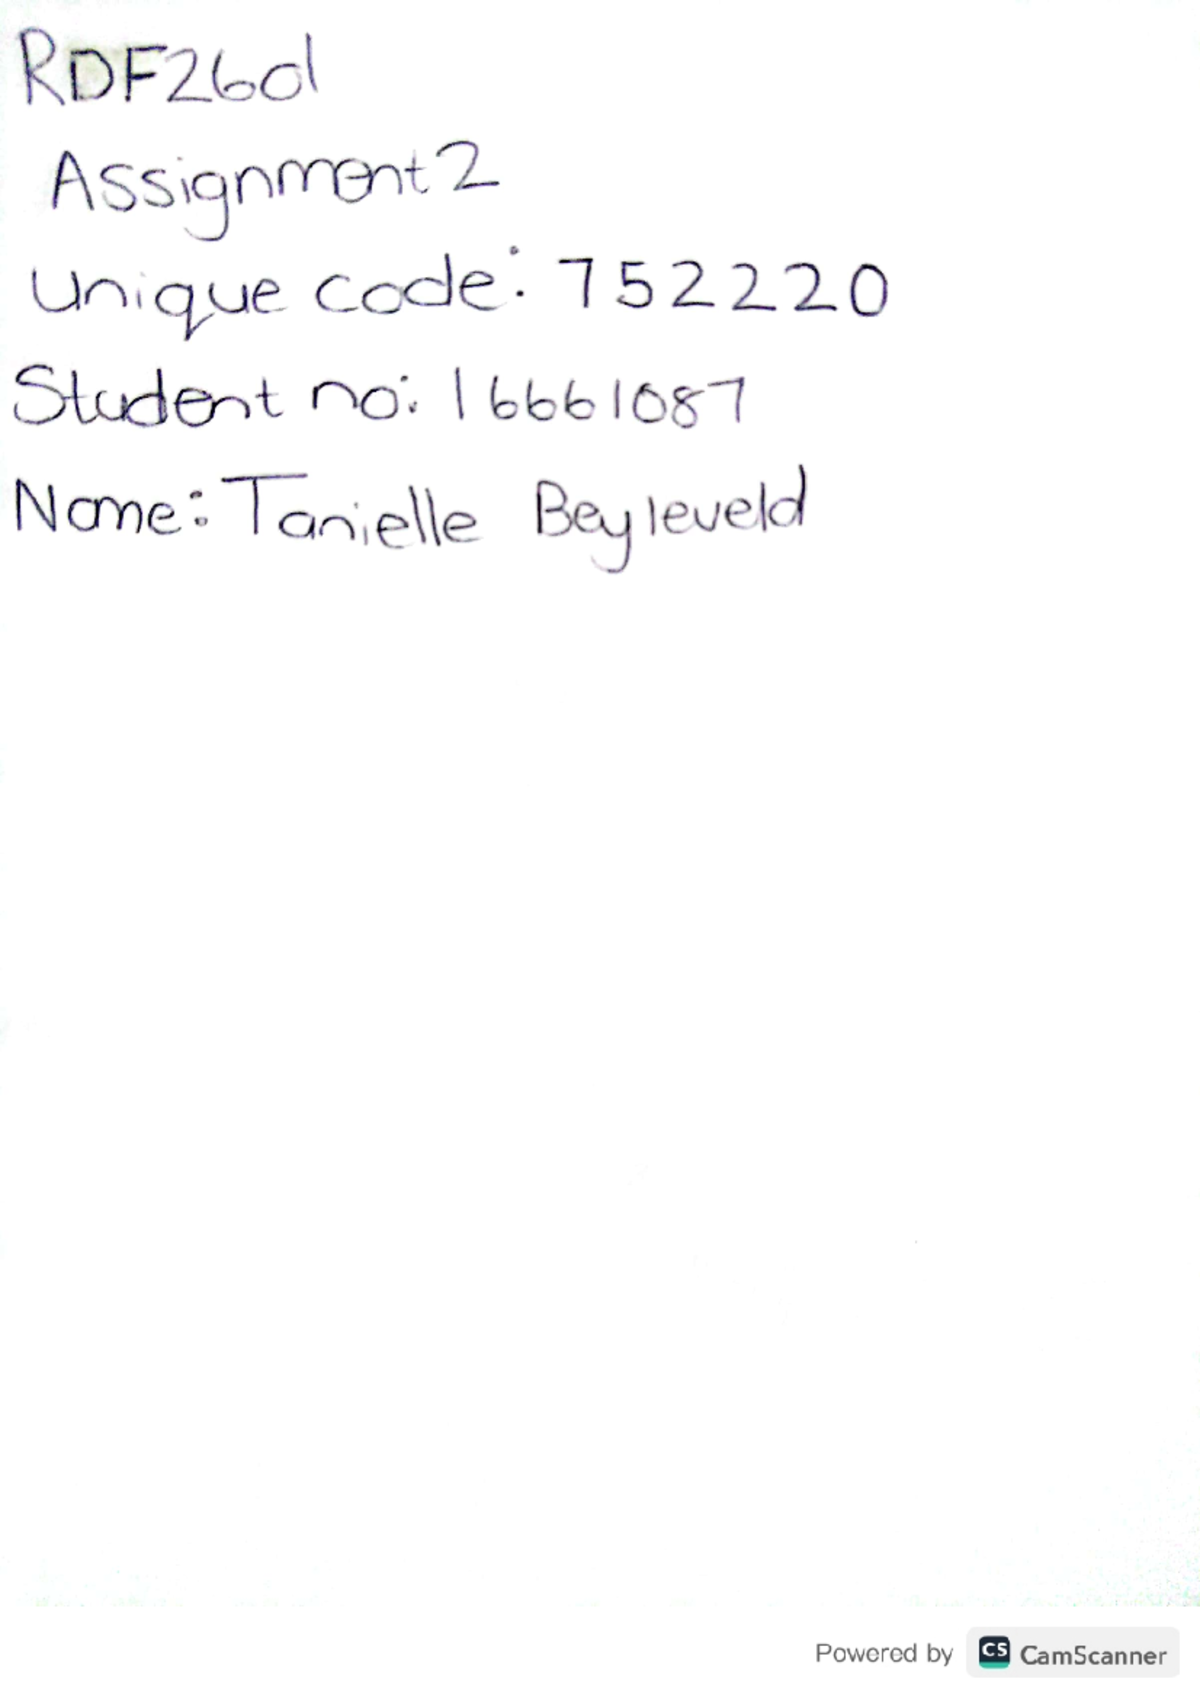 RDF2601
Assignment 2
Unique code: 752220
Student no: 16661087
Name: Tanielle Beyleveld
Powered by CS CamScanner